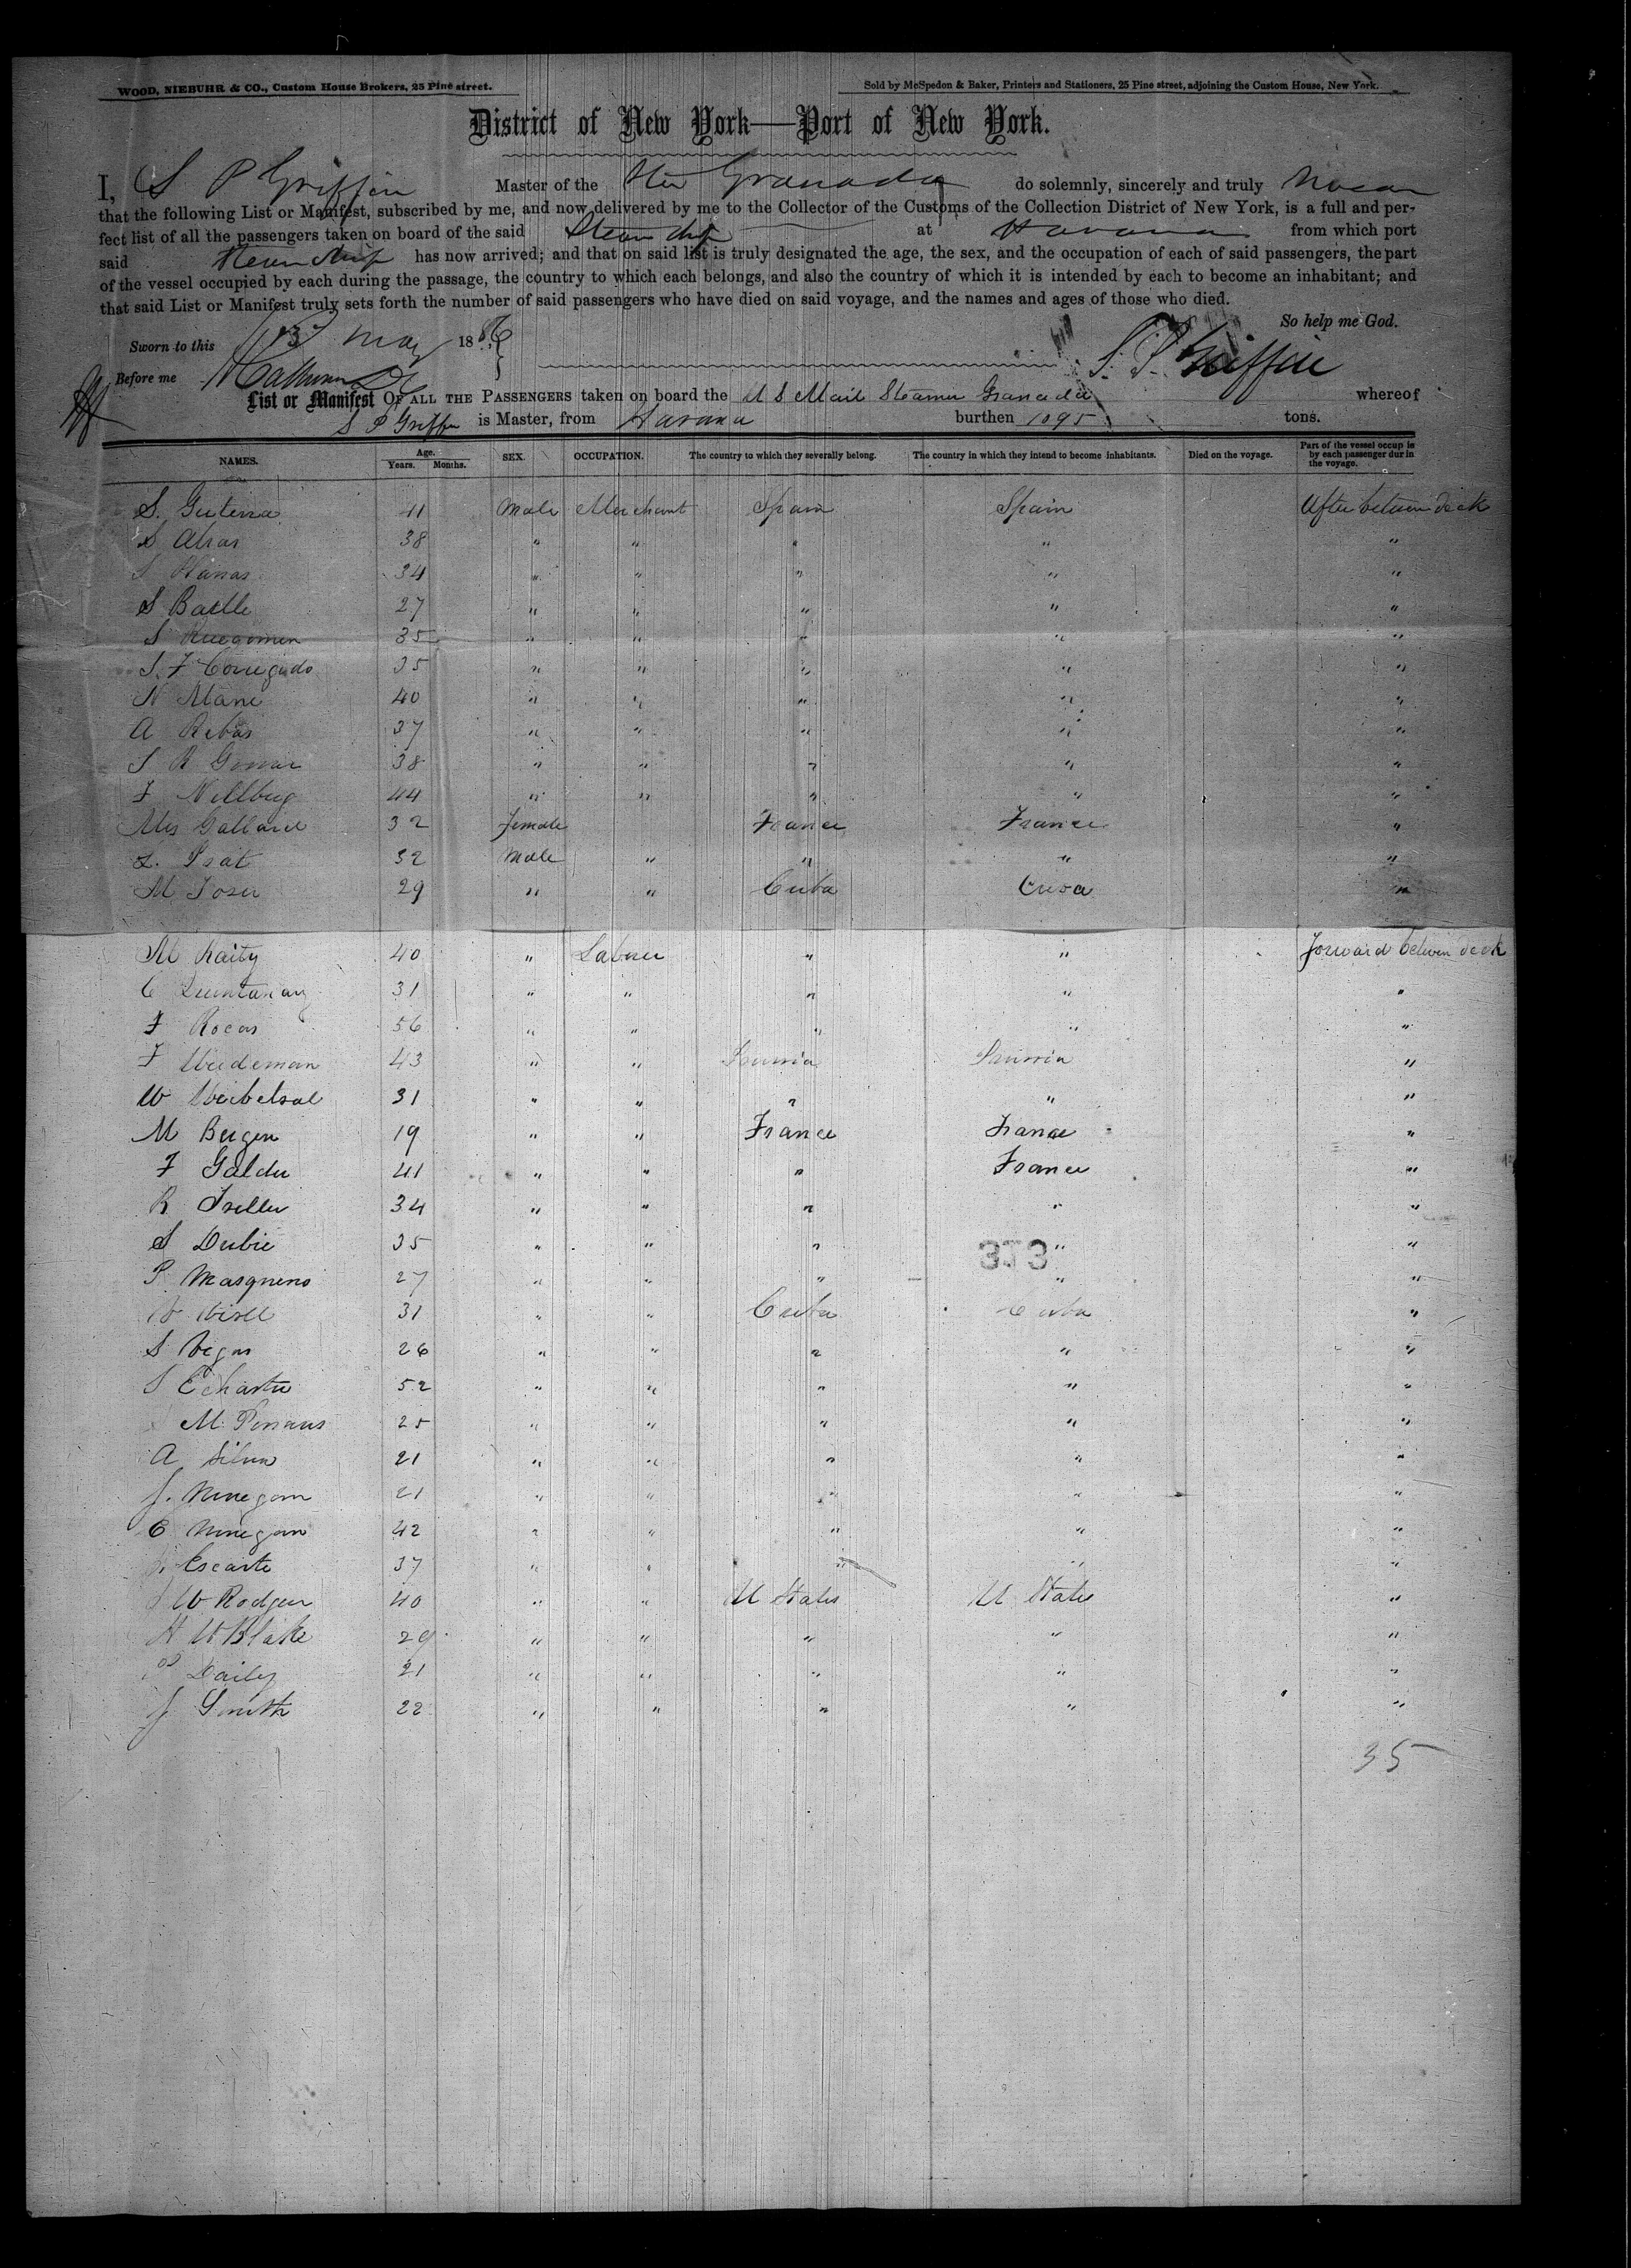 WOOD, NIEBUHR & CO., Custom House Brokers, 25 Pine street. Sold by McSpedon & Baker, Printers and Stationers, 25 Pine street, adjoining the Custom House, New York.
District of New York—Port of New York.
I, S P Griffin Master of the Str Granada do solemnly, sincerely and truly swear
that the following List or Manifest, subscribed by me, and now delivered by me to the Collector of the Customs of the Collection District of New York, is a full and per-
fect list of all the passengers taken on board of the said Steam Ship at Havana from which port
said Steam Ship has now arrived; and that on said list is truly designated the age, the sex, and the occupation of each of said passengers, the part
of the vessel occupied by each during the passage, the country to which each belongs, and also the country of which it is intended by each to become an inhabitant; and
that said List or Manifest truly sets forth the number of said passengers who have died on said voyage, and the names and ages of those who died.
So help me God.
Sworn to this 13 May 18
Before me S. P. Griffin
List or Manifest OF ALL THE PASSENGERS taken on board the U S Mail Steamer Granada whereof
S P Griffin is Master, from Havana burthen 1095 tons.
NAMES. Age. Years. Months. SEX. OCCUPATION. The country to which they severally belong. The country in which they intend to become inhabitants. Died on the voyage. Part of the vessel occup ie by each passenger dur in the voyage.
S. 41 Male Merchant Spain Spain After between deck
S 38 " " " " "
S 34 " " " " "
S Baille 27 " " " " "
S 35 " " " " "
S. F Corregido 35 " " " " "
N Mane 40 " " " " "
A Rebas 37 " " " " "
S R 38 " " " " "
F Nellbug 44 " " " " "
Mrs Gallard 32 Female France France "
L. Prat 32 Male " " " "
M 29 " " Cuba Cuba "
M Raity 40 " Laborer " " Forward between deck
C Quintanay 31 " " " " "
F Rocas 56 " " " " "
F Weideman 43 " " Prussia Prussia "
W 31 " " " " "
M Bergen 19 " " France France "
F Galdu 41 " " " France "
R 34 " " " " "
S Dubie 35 " " " " "
373
P Masqueno 27 " " " " "
31 " " Cuba Cuba "
S Vegas 26 " " " " "
S Echarte 52 " " " " "
M. 25 " " " " "
A Silva 21 " " " " "
J. Munegan 21 " " " " "
C Munegan 42 " " " " "
Escarte 37 " " " " "
W Rodgers 40 " " U States U States "
H W Blake 29 " " " " "
P Daily 21 " " " " "
J Smith 22 " " " " "
35